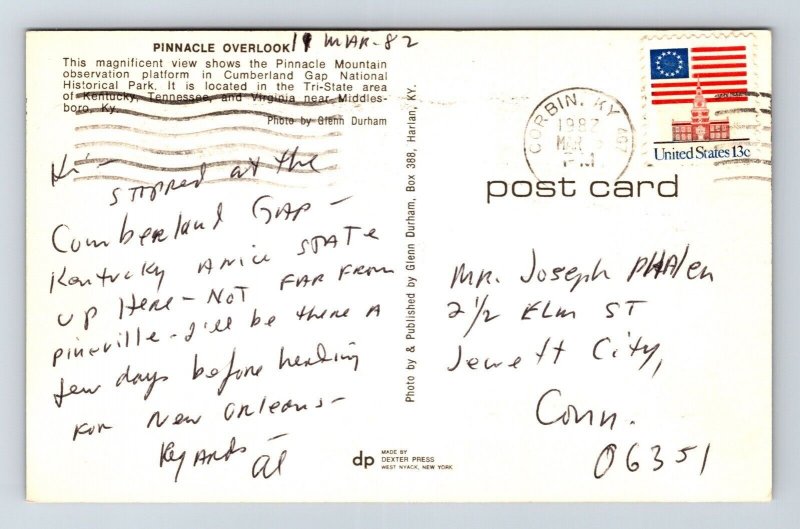 PINNACLE OVERLOOK
11 MAR-82
This magnificent view shows the Pinnacle Mountain
observation platform in Cumberland Gap National
Historical Park. It is located in the Tri-State area
of Kentucky, Tennessee, and Virginia near Middles-
boro, Ky.
Photo by Glenn Durham
Hi -
STOPPED at the
Cumberland GAP -
Kentucky A nice STATE
up Here - NOT FAR FROM
pineville - I'll be there A
few days before heading
FOR New ORleans -
RegARDS -
Al
Photo by & Published by Glenn Durham, Box 388, Harlan, KY.
dp
MADE BY
DEXTER PRESS
WEST NYACK, NEW YORK
CORBIN, KY
407
1982
MAR
PM
United States 13c
post card
MR. Joseph PHAlen
2 1/2 ELm ST
Jewett City,
Conn.
06351